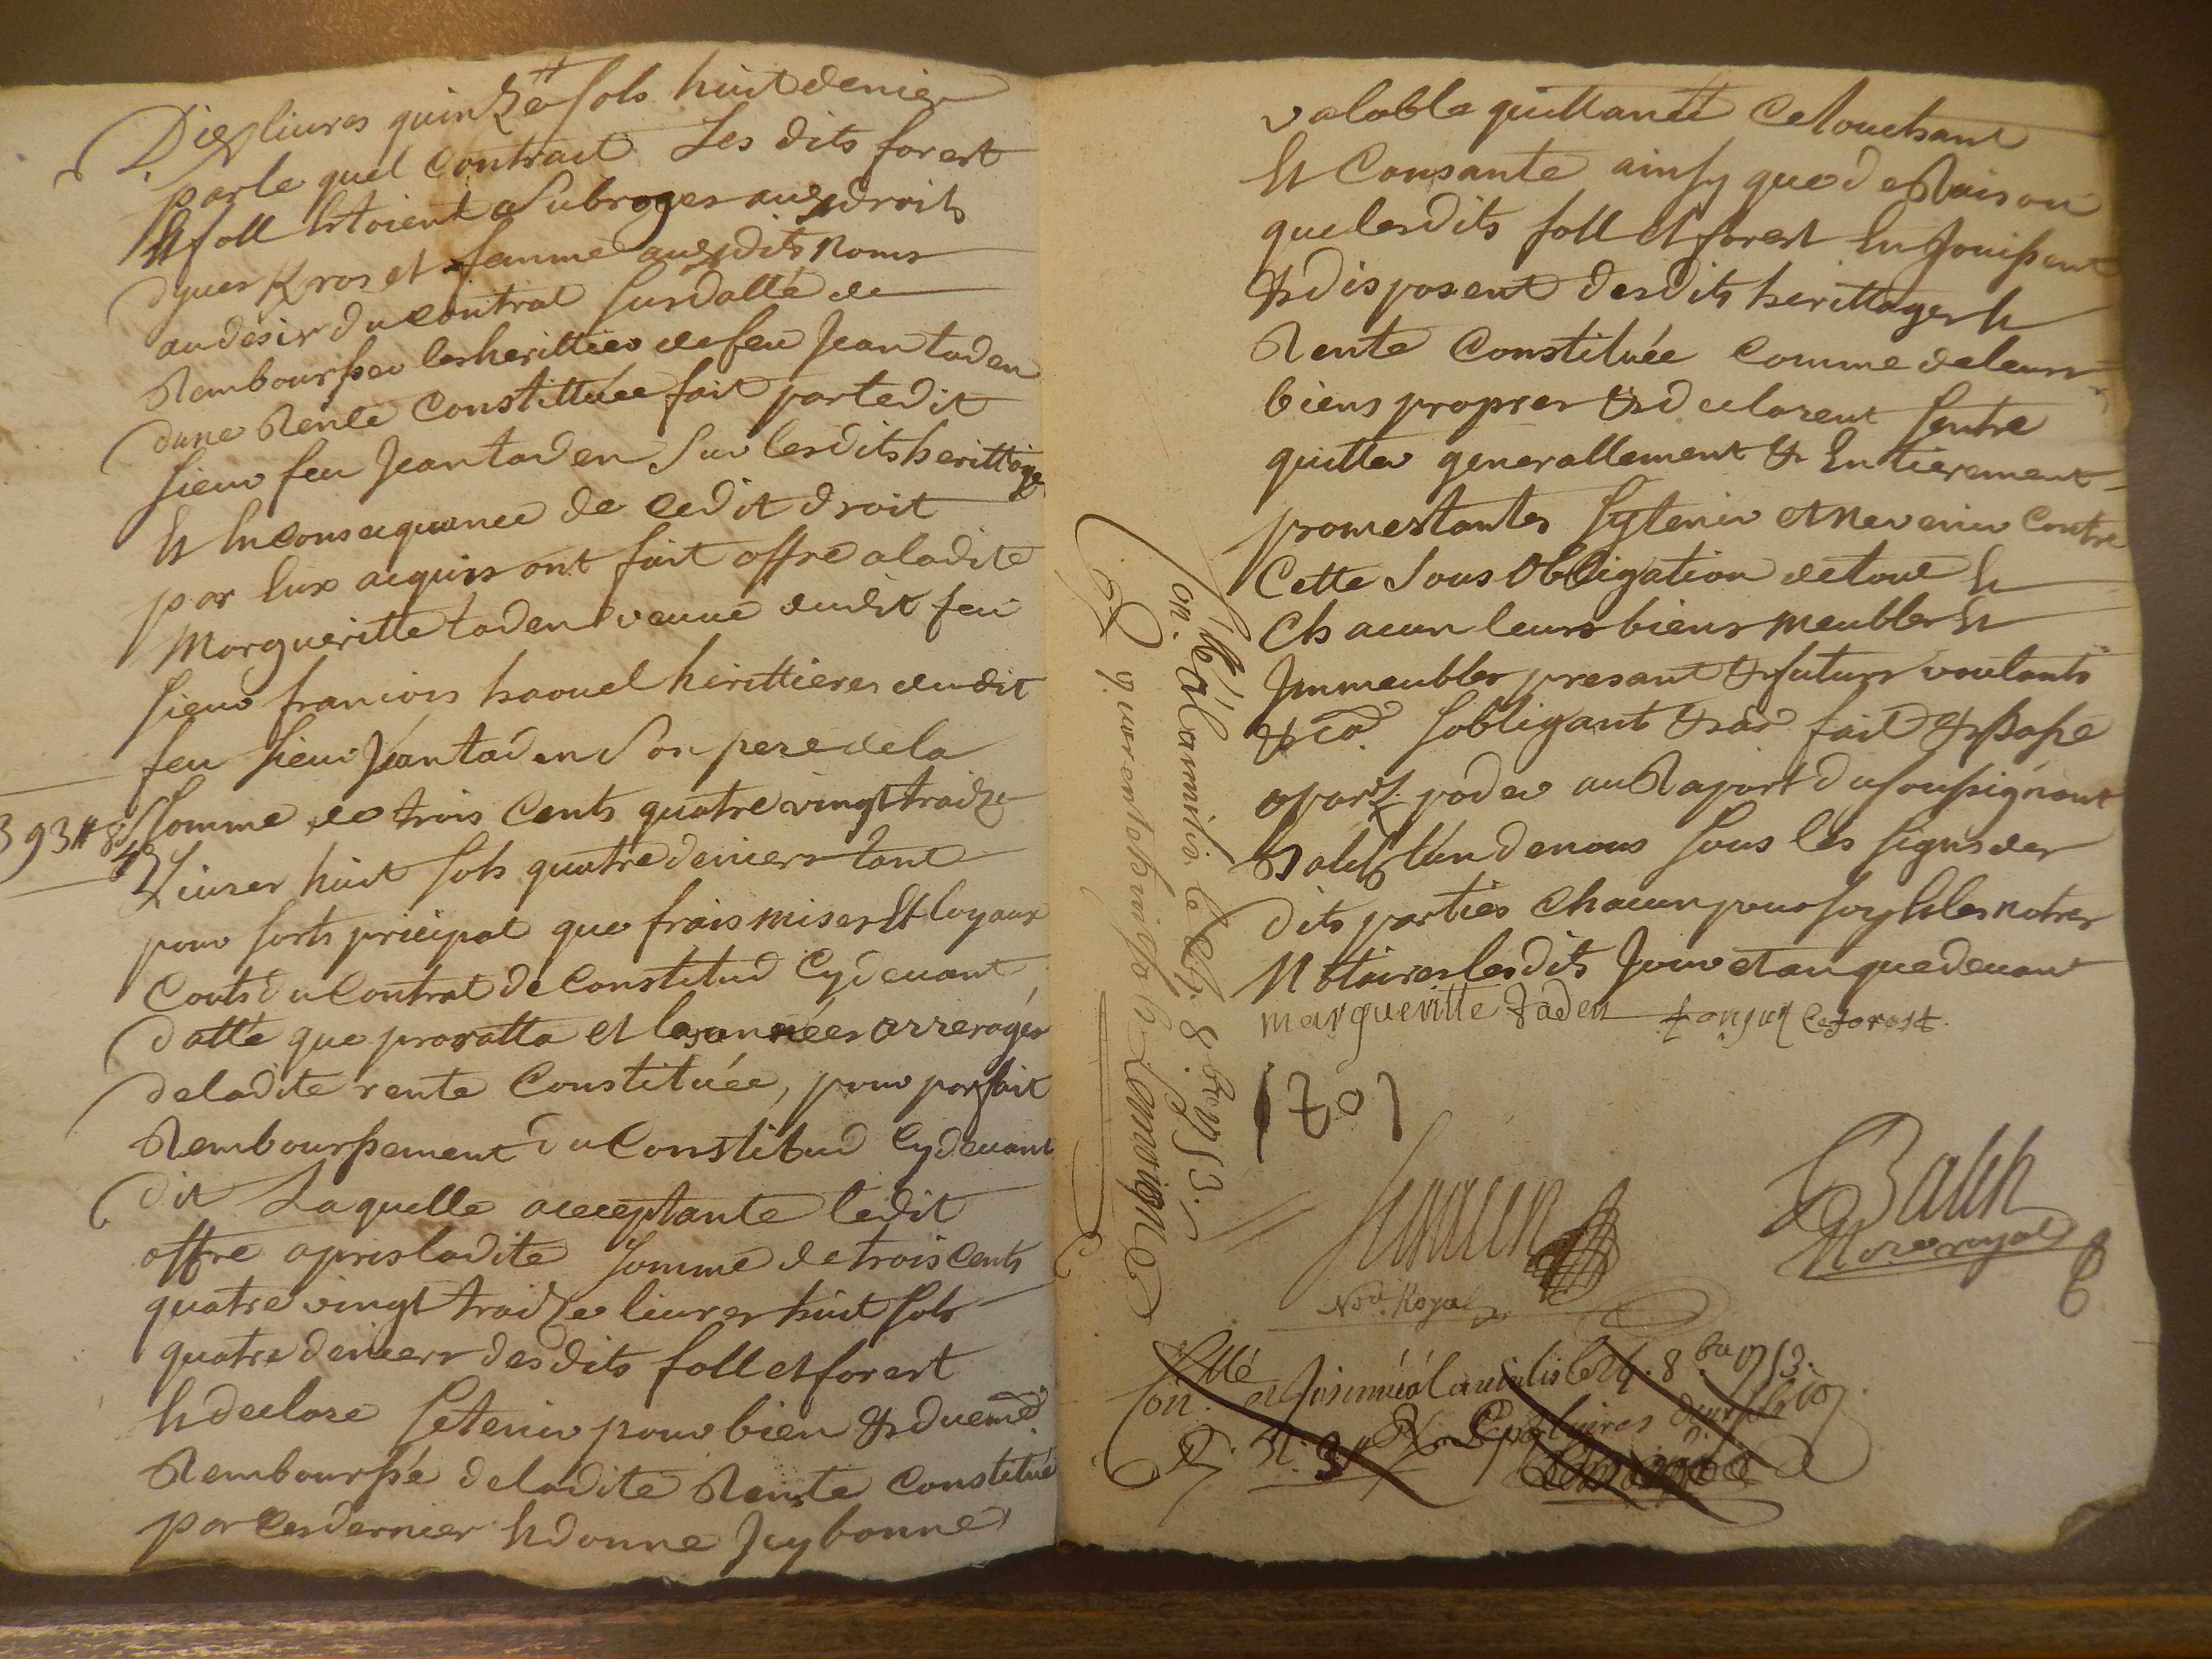 Dix livres quinze sols huit denier
par le quel contract Les dits forest
Et foll Estoient Subroges aux droits
dyves Kros et femme auxdits noms
au desir du contrat susdatté de
Rembourser les herittiers de feu Jean taden
dune Rente Constittuée fait par ledit
sieur feu Jean taden Sur lesdits herittages
Et En consequance de cedit droit
par Eux acquis ont fait offre a ladite
Margueritte taden veuve dudit feu
sieur francois haouel herittieres dudit
feu sieur Jean taden Son pere de la
393# 8s 4d
Somme de trois Cents quatre vingt traize
Livres huit sols quatre deniers tant
pour sorts pricipal que frais mises Et loyaux
Couts du Contrat de Constitud Cydevant
datté que proratta et les années arrerages
de ladite rente Constituée, pour parfait
Rembourssement du Constitud Cydevant
dit Laquelle acceptante ledit
offre a pris ladite somme de trois Cents
quatre vingt traize livres huit sols
quatre deniers desdits foll et forest
Et declare se tenir pour bien & duemt
Remboursé de ladite Rente Constitué
par ces dernier Et donne Icy bonne
valable quittance Ce touchant
Et Consante ainsy que de Raison
que lesdits foll et forest En Jouissent
& disposent desdits herittages Et
Rente Constituée Comme de leurs
biens propres & declarent sentre
quitter generallement & Entierement
promestantes sy tenir et ne venir Contre
Cette Sous Obligation de tout Et
Chacun leurs biens meubles Et
Immeubles presant & futurs voulants
&ca sobligants & ca fait & passé
au Raport du soussignant
Balch lun de nous sous les signs des
dits parties Chacun pour soy Et les notres
Nottaires lesdits Jour et an que devant
margueritte taden forest
Balch
Nore royal
Nore Royal
Con. llé a Lannilis le 24. 8bre 1753.
R. quarente huit sols
Con. llé et Insinué a Lannilis le 24. 8bre 1753.